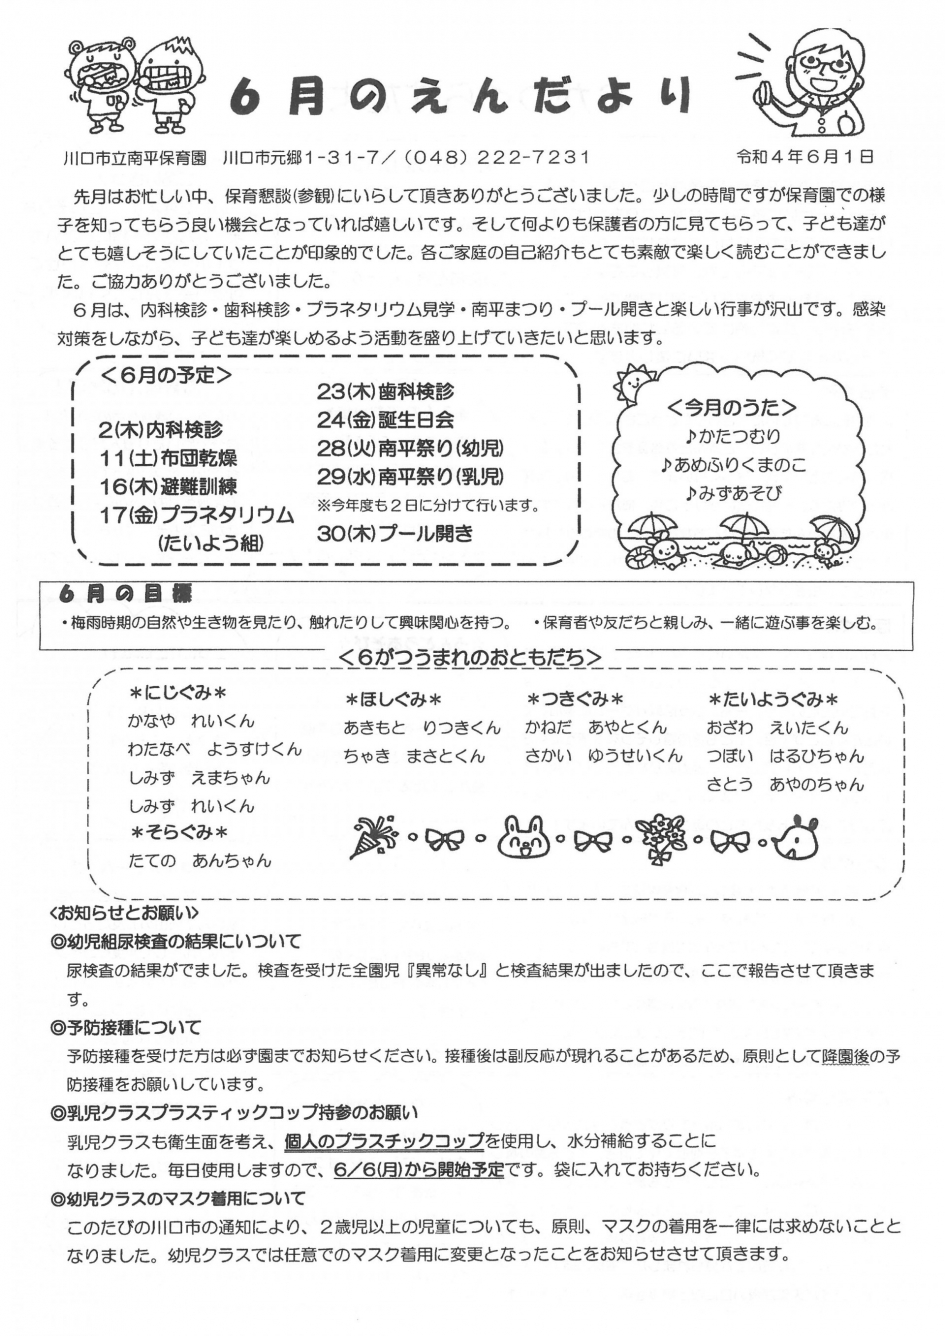 6月のえんだより
川口市立南平保育園　川口市元郷1-31-7／（048）222-7231　令和4年6月1日
先月はお忙しい中、保育懇談(参観)にいらして頂きありがとうございました。少しの時間ですが保育園での様
子を知ってもらう良い機会となっていれば嬉しいです。そして何よりも保護者の方に見てもらって、子ども達が
とても嬉しそうにしていたことが印象的でした。各ご家庭の自己紹介もとても素敵で楽しく読むことができまし
た。ご協力ありがとうございました。
6月は、内科検診・歯科検診・プラネタリウム見学・南平まつり・プール開きと楽しい行事が沢山です。感染
対策をしながら、子ども達が楽しめるよう活動を盛り上げていきたいと思います。
＜6月の予定＞
2(木)内科検診
11(土)布団乾燥
16(木)避難訓練
17(金)プラネタリウム
(たいよう組)
23(木)歯科検診
24(金)誕生日会
28(火)南平祭り(幼児)
29(水)南平祭り(乳児)
※今年度も2日に分けて行います。
30(木)プール開き
＜今月のうた＞
♪かたつむり
♪あめふりくまのこ
♪みずあそび
6月の目標
・梅雨時期の自然や生き物を見たり、触れたりして興味関心を持つ。　・保育者や友だちと親しみ、一緒に遊ぶ事を楽しむ。
＜6がつうまれのおともだち＞
＊にじぐみ＊
かなや　れいくん
わたなべ　ようすけくん
しみず　えまちゃん
しみず　れいくん
＊そらぐみ＊
たての　あんちゃん
＊ほしぐみ＊
あきもと　りつきくん
ちゃき　まさとくん
＊つきぐみ＊
かねだ　あやとくん
さかい　ゆうせいくん
＊たいようぐみ＊
おざわ　えいたくん
つぼい　はるひちゃん
さとう　あやのちゃん
<お知らせとお願い>
◎幼児組尿検査の結果にいついて
尿検査の結果がでました。検査を受けた全園児『異常なし』と検査結果が出ましたので、ここで報告させて頂きま
す。
◎予防接種について
予防接種を受けた方は必ず園までお知らせください。接種後は副反応が現れることがあるため、原則として降園後の予
防接種をお願いしています。
◎乳児クラスプラスティックコップ持参のお願い
乳児クラスも衛生面を考え、個人のプラスチックコップを使用し、水分補給することに
なりました。毎日使用しますので、6／6(月)から開始予定です。袋に入れてお持ちください。
◎幼児クラスのマスク着用について
このたびの川口市の通知により、2歳児以上の児童についても、原則、マスクの着用を一律には求めないことと
なりました。幼児クラスでは任意でのマスク着用に変更となったことをお知らせさせて頂きます。